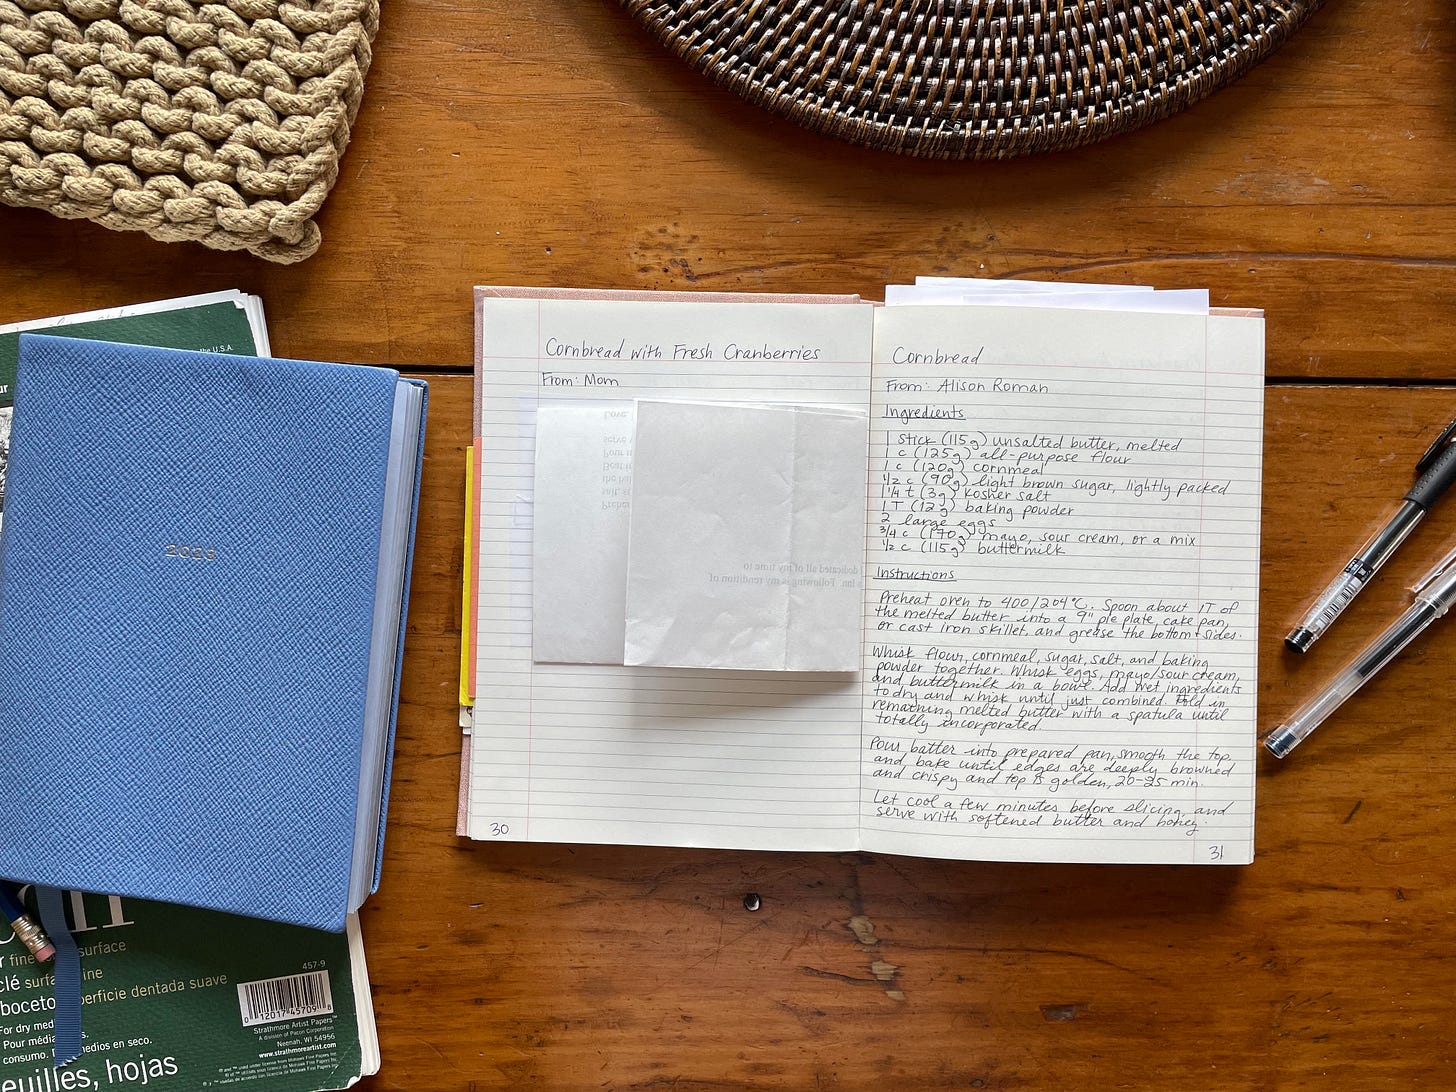 Cornbread with Fresh Cranberries
From: Mom
Love,
serve
Pour
Beat
the
salt,
Prehe
dedicated all of my time to
Inn. Following is my rendition of
30
Cornbread
From: Alison Roman
Ingredients
1 stick (115g) unsalted butter, melted
1 c (125g) all-purpose flour
1 c (120g) cornmeal
1/2 c (90g) light brown sugar, lightly packed
1 1/4 t (3g) kosher salt
1 T (12g) baking powder
2 large eggs
3/4 c (170g) mayo, sour cream, or a mix
1/2 c (115g) buttermilk
Instructions
Preheat oven to 400/204°C. Spoon about 1T of
the melted butter into a 9" pie plate, cake pan,
or cast iron skillet, and grease the bottom + sides.
Whisk flour, cornmeal, sugar, salt, and baking
powder together. Whisk eggs, mayo/sour cream,
and buttermilk in a bowl. Add wet ingredients
to dry and whisk until just combined. Fold in
remaining melted butter with a spatula until
totally incorporated.
Pour batter into prepared pan, smooth the top
and bake until edges are deeply browned
and crispy and top is golden, 20-25 min.
Let cool a few minutes before slicing and
serve with softened butter and honey.
31
2023
the U.S.A.
fine surface
clé surface fine
boceto superficie dentada suave
For dry med
Pour média
consumo. medios en seco.
euilles, hojas
457-9
0 12017 45709 8
Strathmore Artist Papers™
A division of Pacon Corporation
Neenah, WI 54956
www.strathmoreartist.com